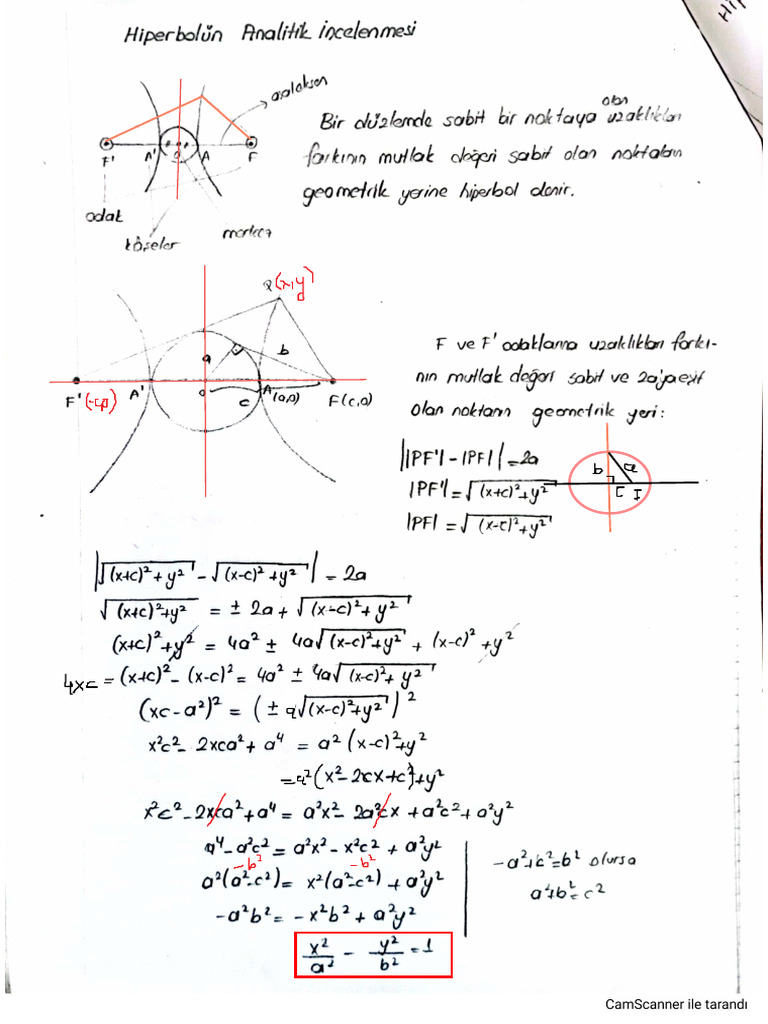 Hiperbolün Analitik incelenmesi
asal eksen
F' A' O A F
odak
köşeler
merkez
Bir düzlemde sabit bir noktaya olan uzaklıkları
farkının mutlak değeri sabit olan noktaların
geometrik yerine hiperbol denir.
P(x,y)
a b
F' A' O C A(a,0) F(c,0)
F ve F' odaklarına uzaklıkları farkı-
nın mutlak değeri sabit ve 2a'ya eşit
olan noktanın geometrik yeri:
||PF'| - |PF|| = 2a
|PF'| = √(x+c)²+y²
|PF| = √(x-c)²+y²
b a
|√(x+c)²+y² - √(x-c)²+y²| = 2a
√(x+c)²+y² = ± 2a + √(x-c)²+y²
(x+c)²+y² = 4a² ± 4a√(x-c)²+y² + (x-c)²+y²
4xc = (x+c)² - (x-c)² = 4a² ± 4a√(x-c)²+y²
(xc-a²)² = (± a√(x-c)²+y²)²
x²c² - 2xca² + a⁴ = a²(x-c)²+y²
= a²(x²-2cx+c²)+y²
x²c² - 2xca² + a⁴ = a²x² - 2a²cx + a²c² + a²y²
a⁴ - a²c² = a²x² - x²c² + a²y²
-b² -b²
a²(a²-c²) = x²(a²-c²) + a²y²
-a²b² = -x²b² + a²y²
x²/a² - y²/b² = 1
-a²+c²=b² olursa
a²+b²=c²
CamScanner ile tarandı